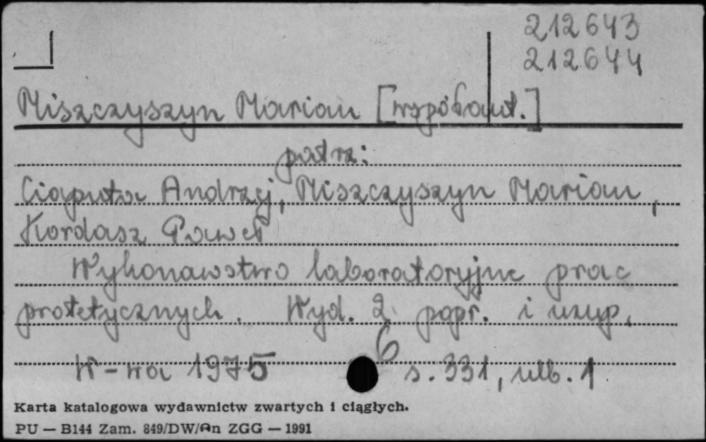 212643
212644
Miszczyszyn Marian [współaut.]
patrz:
Ciaputa Andrzej, Miszczyszyn Marian,
Kordasz Paweł
Wykonawstwo laboratoryjne prac
protetycznych. Wyd. 2 popr. i uzup.
W-wa 1975 6 s. 331, nlb. 1
Karta katalogowa wydawnictw zwartych i ciągłych.
PU — B144 Zam. 849/DW/An ZGG — 1991